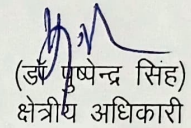 (डॉ पुष्पेन्द्र सिंह)
क्षेत्रीय अधिकारी